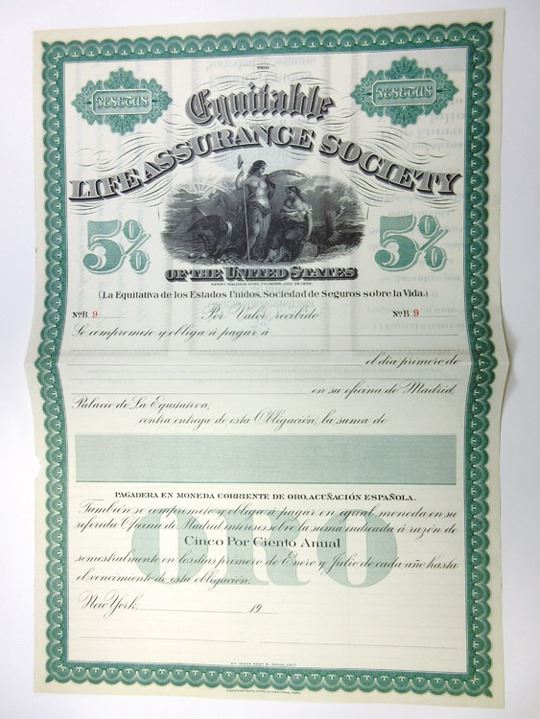 THE
PESETAS PESETAS
Equitable
LIFE ASSURANCE SOCIETY
5% 5%
OF THE UNITED STATES
HENRY BALDWIN HYDE, FOUNDER, JULY 26, 1859.
(La Equitativa de los Estados Unidos, Sociedad de Seguros sobre la Vida.)
Nº B 9 Por Valor recibido Nº B 9
Se compromete y obliga á pagar á
el dia primero de
en su oficina de Madrid,
Palacio de La Equitativa,
contra entrega de esta Obligación, la suma de
PAGADERA EN MONEDA CORRIENTE DE ORO, ACUÑACIÓN ESPAÑOLA.
También se compromete y obliga á pagar en igual moneda en su
referida Oficina de Madrid intereses sobre la suma indicada á razón de
Cinco Por Ciento Anual
semestralmente en los dias primero de Enero y Julio de cada año hasta
el vencimiento de esta obligación.
ORO
New York, 19